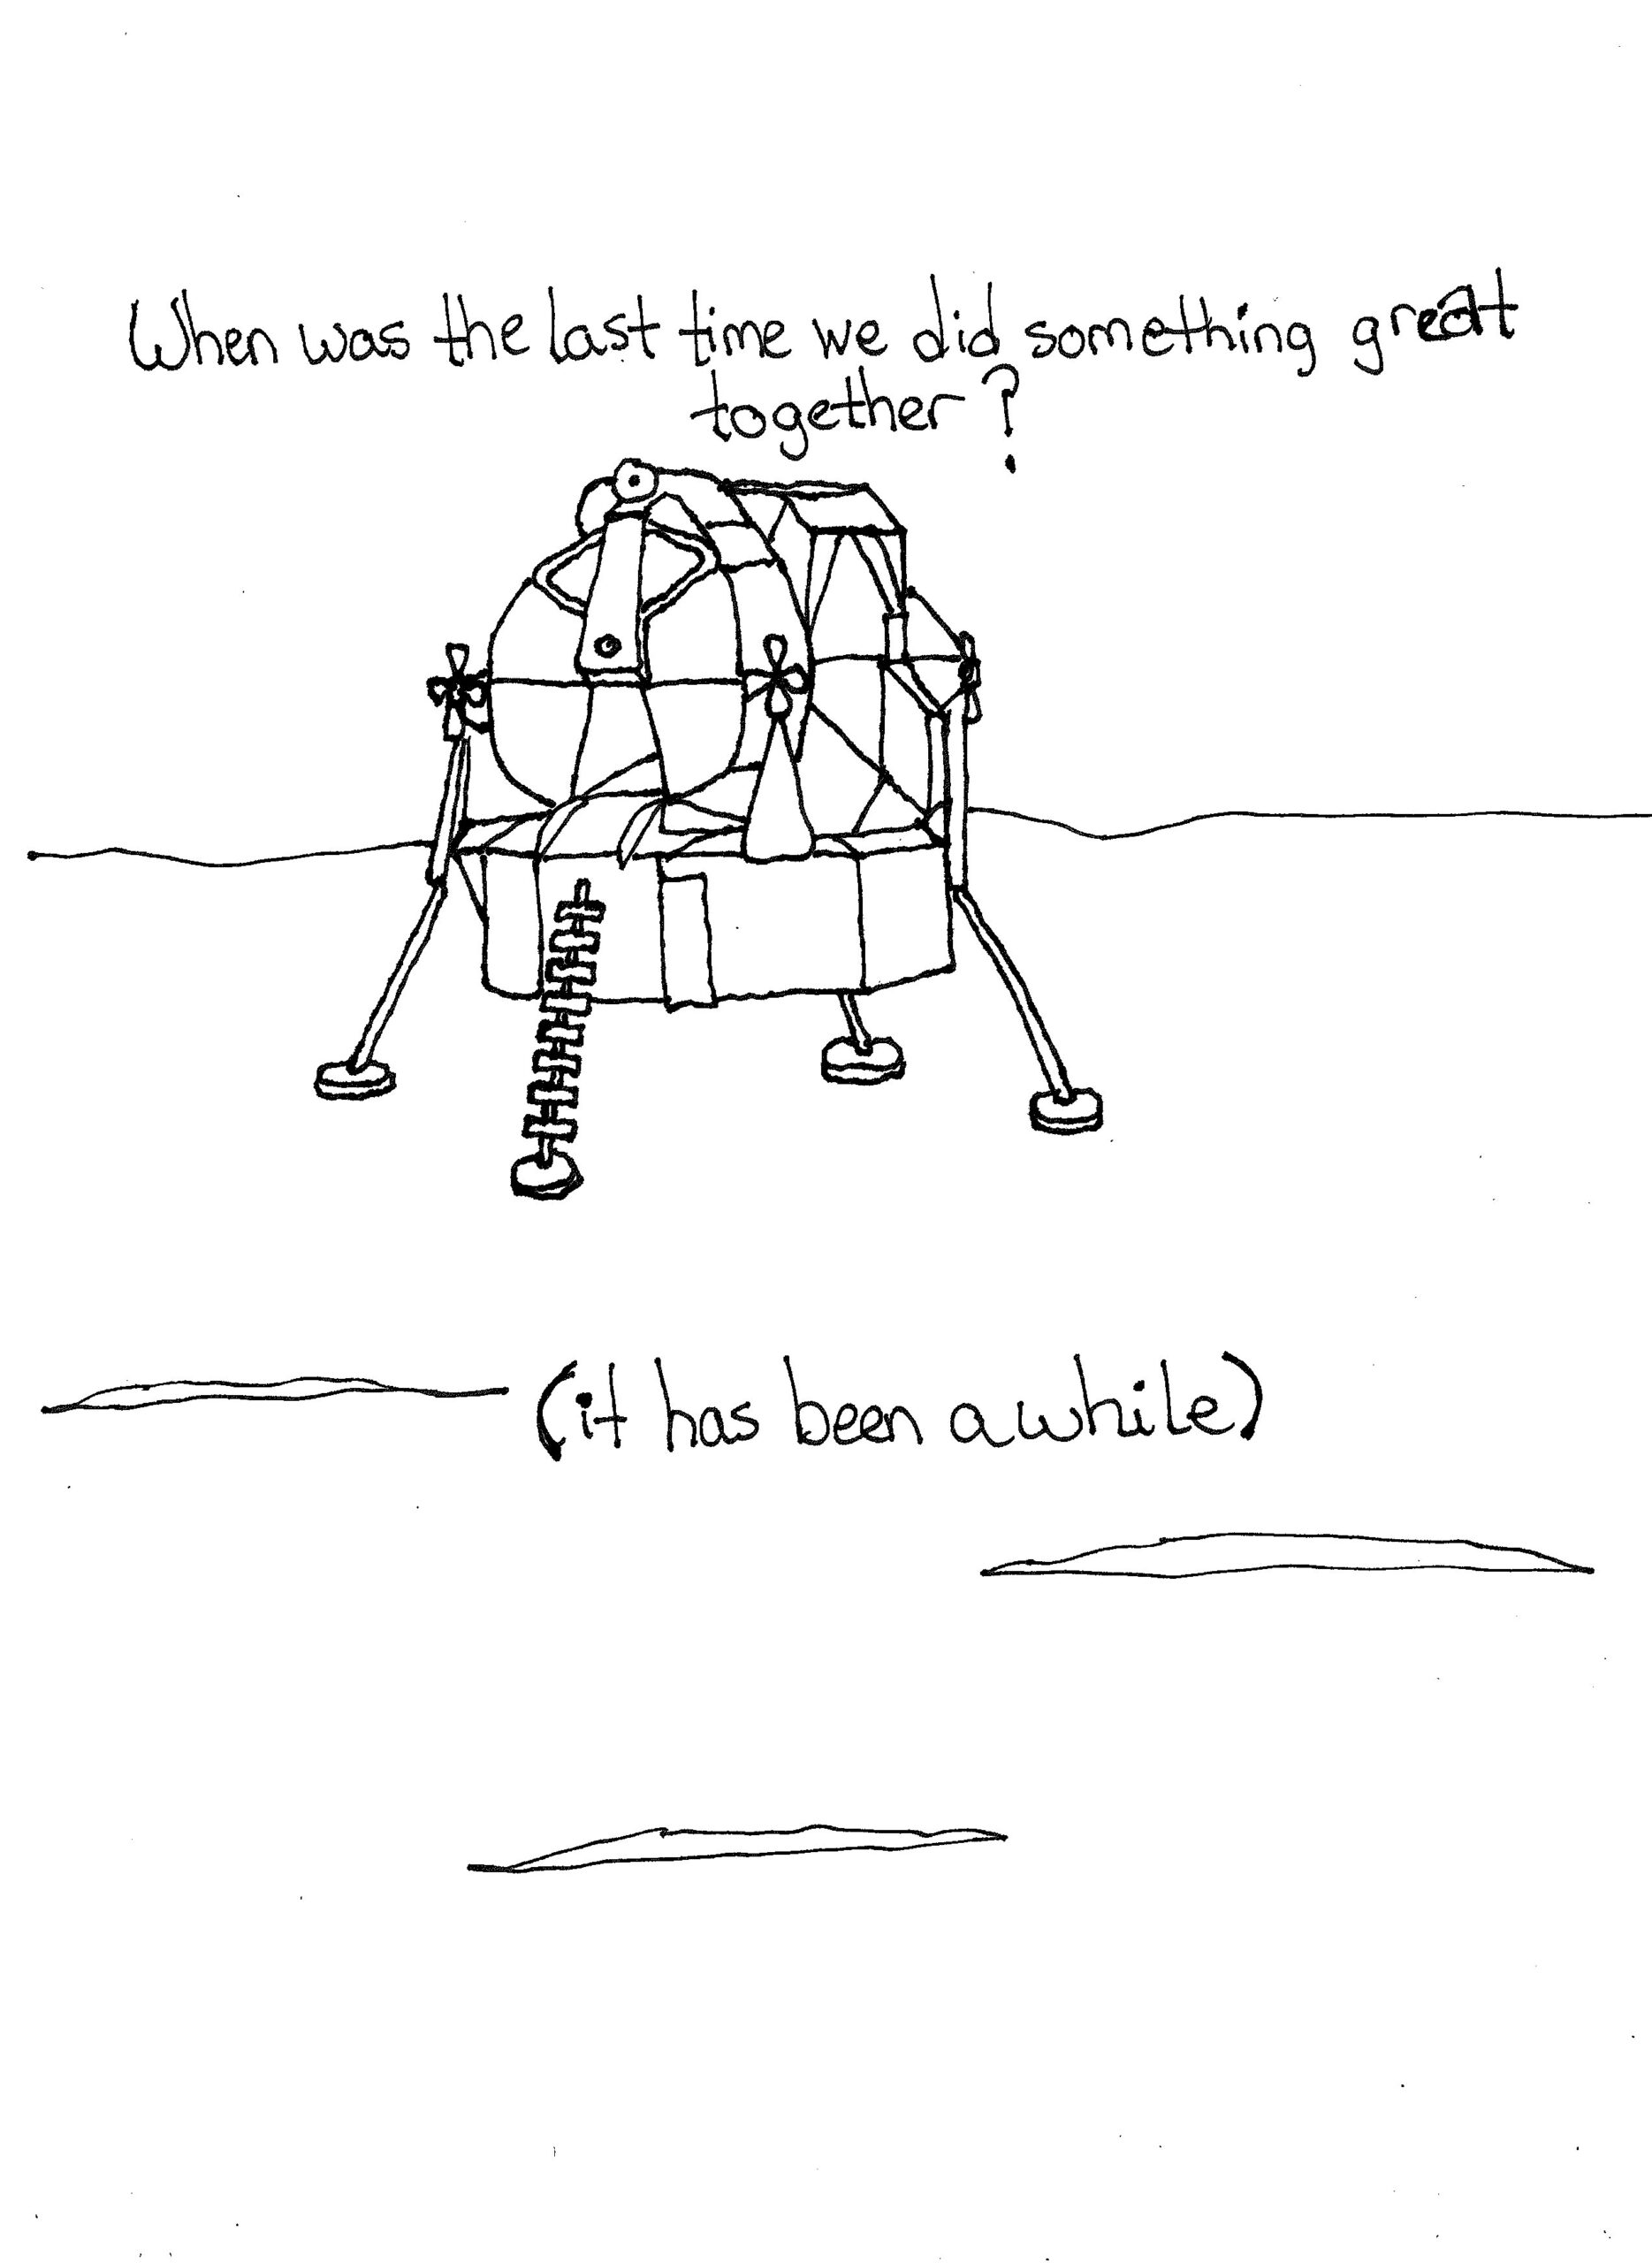 When was the last time we did something great
together?
(it has been awhile)